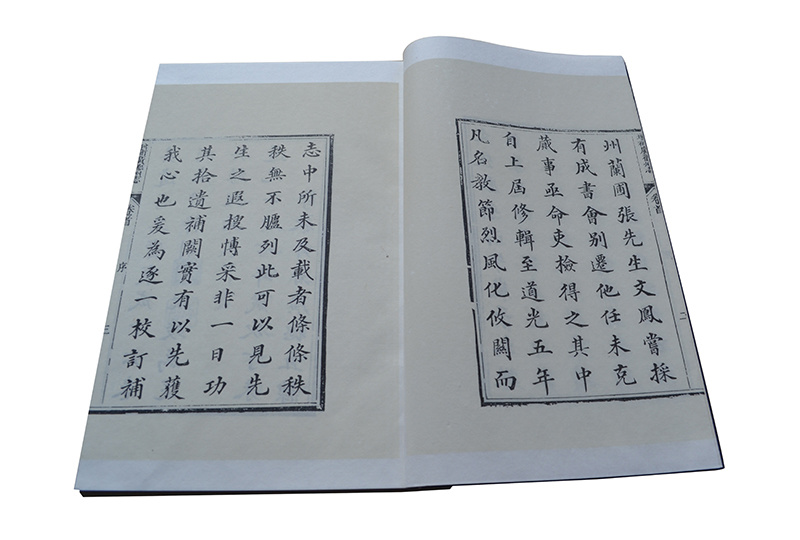 州蘭圃張先生文鳳嘗採
有成書會别遷他任未克
蕆事亟命吏檢得之其中
自上屆修輯至道光五年
凡名教節烈風化攸關而
卷首
二
志中所未及載者條條秩
秩無不臚列此可以見先
生之遐搜博采非一日功
其拾遺補闕實有以先獲
我心也爰為逐一校訂補
卷首
序
三